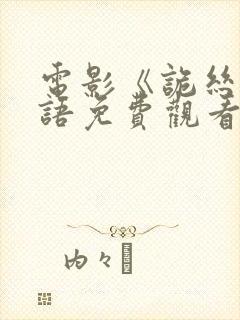 電影《詭絲
語免費觀看
内々